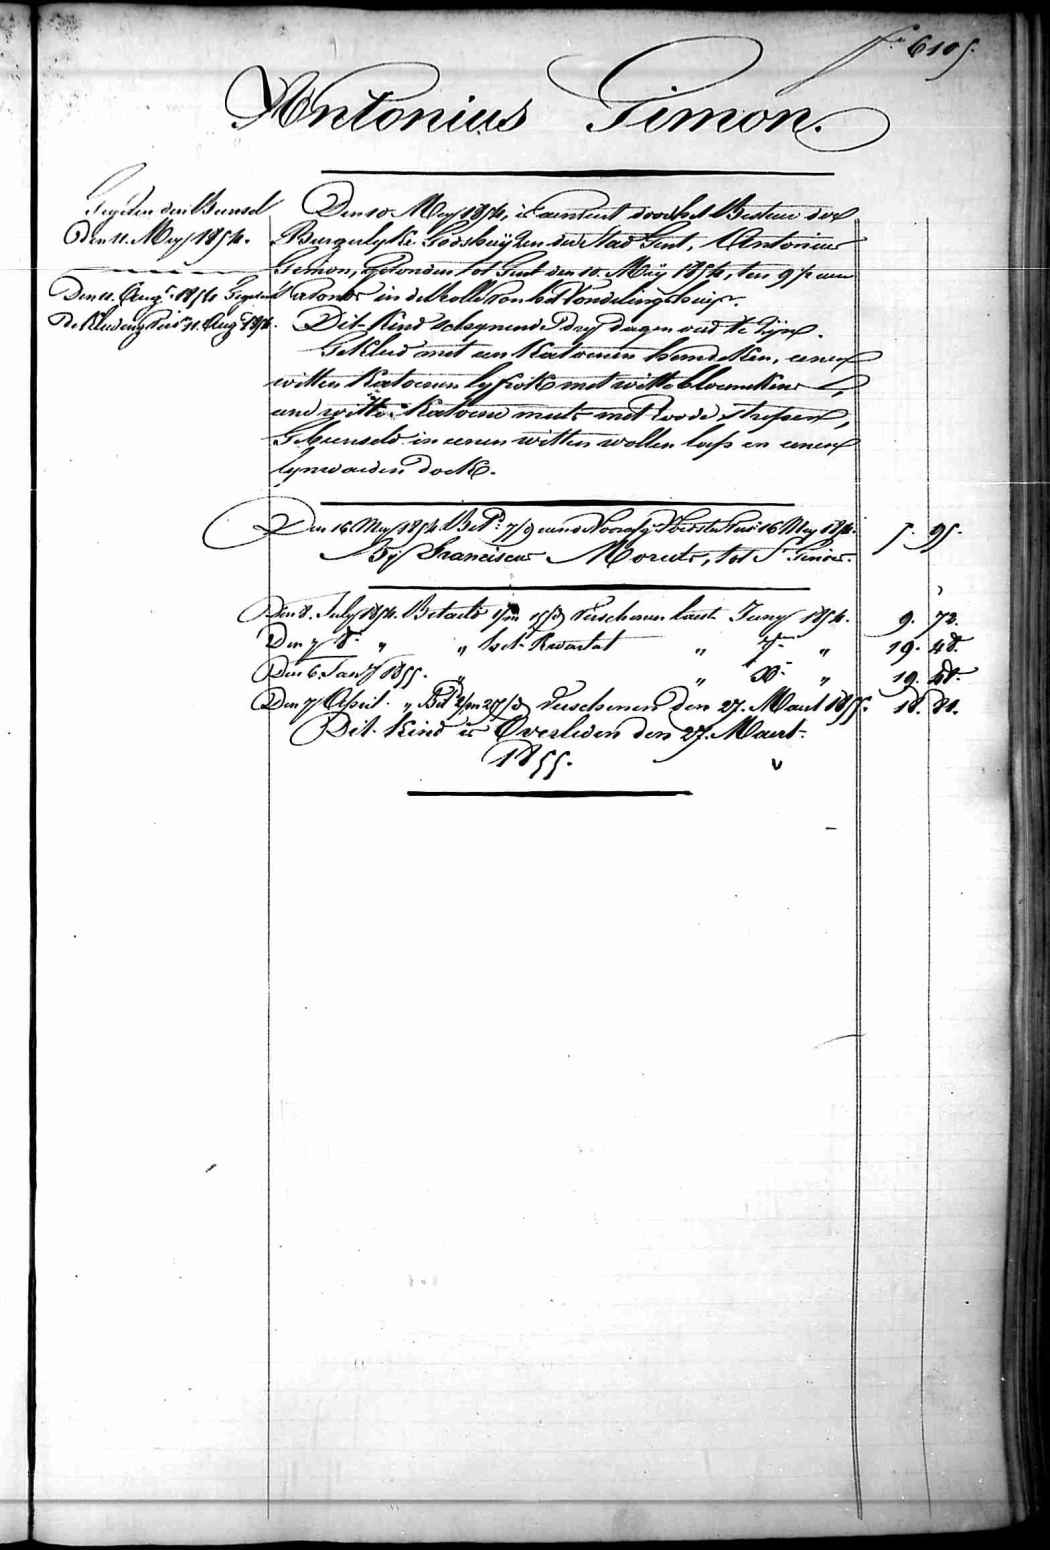 fo 6105.
Antonius Simon.
Gegeven den Bunsel
Den 11. Mey 1854.
Den 11. Augt 1854 Gegeven
de Kleeding 11. Aug 1854.
Den 10. Mey 1854, is aenveird door het Bestuer der
Burgerlyke Godshuyzen der Stad Gent, Antonius
Simon, gevonden tot Gent den 10. Mey 1854, ten 9½ uren
's avonds in de Rolle van het Vondelinghuis.
Dit Kind schynende dry dagen oud te zyn.
Gekleed met een Katoenen hemdeken, eenen
witten Katoenen lyfrok met witte bloemekens,
eene witte Katoene muts met Roode strepen,
Gebunseld in eenen witten wollen laps en eenen
lynwaeden doek.
Den 16. Mey 1854. Betd 16 Mey 1854. 5. 95.
By Franciscus Moruts, tot St Genois.
Den 8. July 1854. Betaeld 1/m Verschenen laest Juny 1854. 9. 72.
Den 7 8r „ „ het Kwartael „ 7r „ 19. 48.
Den 6. Jany 1855. „ „ Xr „ 19. 48.
Den 7 April. „ Bet 2/m 27/d Verschenen den 27. Maert 1855. 18. 81.
Dit Kind is Overleden den 27. Maert
1855.